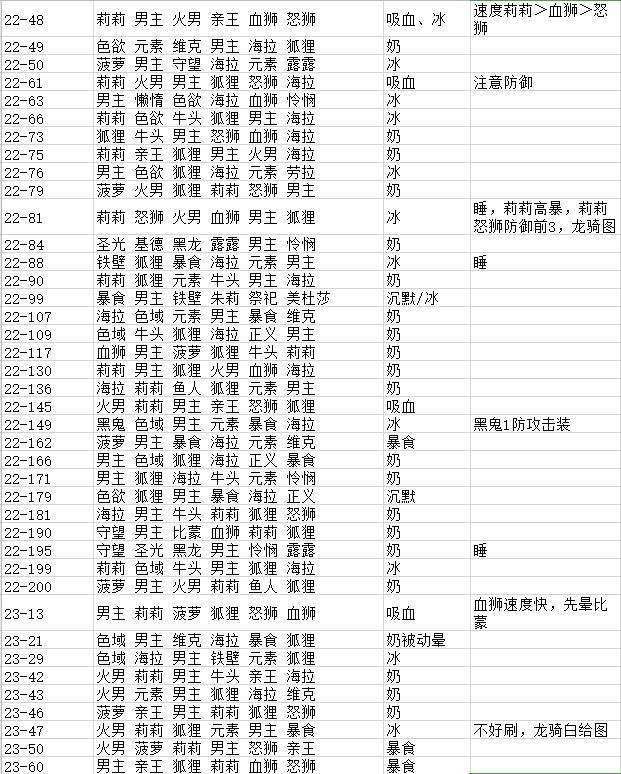 22-48 莉莉 男主 火男 亲王 血狮 怒狮 吸血、冰 速度莉莉＞血狮＞怒
狮
22-49 色欲 元素 维克 男主 海拉 狐狸 奶
22-50 菠萝 男主 守望 海拉 元素 露露 冰
22-61 莉莉 火男 男主 狐狸 怒狮 海拉 吸血 注意防御
22-63 男主 懒惰 色欲 海拉 血狮 怜悯 冰
22-66 莉莉 色欲 牛头 狐狸 男主 海拉 冰
22-73 狐狸 牛头 男主 怒狮 血狮 海拉 奶
22-75 莉莉 亲王 狐狸 男主 火男 海拉 奶
22-76 男主 色欲 狐狸 海拉 元素 劳拉 冰
22-79 菠萝 火男 狐狸 莉莉 怒狮 男主 奶
22-81 莉莉 怒狮 火男 血狮 男主 狐狸 冰 睡，莉莉高暴，莉莉
怒狮防御前3，龙骑图
22-84 圣光 基德 黑龙 露露 男主 怜悯 奶
22-88 铁壁 狐狸 暴食 海拉 元素 男主 冰 睡
22-90 莉莉 狐狸 元素 牛头 男主 海拉 奶
22-99 暴食 男主 铁壁 朱莉 祭祀 美杜莎 沉默/冰
22-107 海拉 色域 元素 男主 暴食 维克 奶
22-109 色域 牛头 狐狸 海拉 正义 男主 奶
22-117 血狮 男主 菠萝 狐狸 牛头 莉莉 奶
22-130 莉莉 男主 狐狸 火男 血狮 海拉 奶
22-136 海拉 莉莉 鱼人 狐狸 元素 男主 奶
22-145 火男 莉莉 男主 亲王 怒狮 狐狸 吸血
22-149 黑鬼 色域 男主 元素 暴食 海拉 冰 黑鬼1防攻击装
22-162 菠萝 男主 暴食 海拉 元素 维克 暴食
22-166 男主 色域 狐狸 海拉 正义 暴食 奶
22-171 男主 狐狸 海拉 牛头 元素 怜悯 奶
22-179 色欲 狐狸 男主 暴食 海拉 正义 沉默
22-181 海拉 男主 牛头 莉莉 狐狸 怒狮 奶
22-190 守望 男主 比蒙 血狮 莉莉 狐狸 奶
22-195 守望 圣光 黑龙 男主 怜悯 露露 奶 睡
22-199 莉莉 色域 牛头 男主 狐狸 海拉 冰
22-200 菠萝 男主 火男 莉莉 鱼人 狐狸 奶
23-13 男主 莉莉 菠萝 狐狸 怒狮 血狮 吸血 血狮速度快，先晕比
蒙
23-21 色域 男主 维克 海拉 暴食 狐狸 奶被动晕
23-29 色域 海拉 男主 铁壁 元素 狐狸 冰
23-42 火男 莉莉 男主 牛头 亲王 海拉 奶
23-43 火男 元素 男主 狐狸 海拉 维克 奶
23-46 菠萝 亲王 男主 莉莉 狐狸 怒狮 奶
23-47 火男 莉莉 狐狸 元素 男主 暴食 冰 不好刷，龙骑白给图
23-50 火男 菠萝 莉莉 男主 怒狮 亲王 暴食
23-60 男主 亲王 狐狸 莉莉 血狮 怒狮 暴食